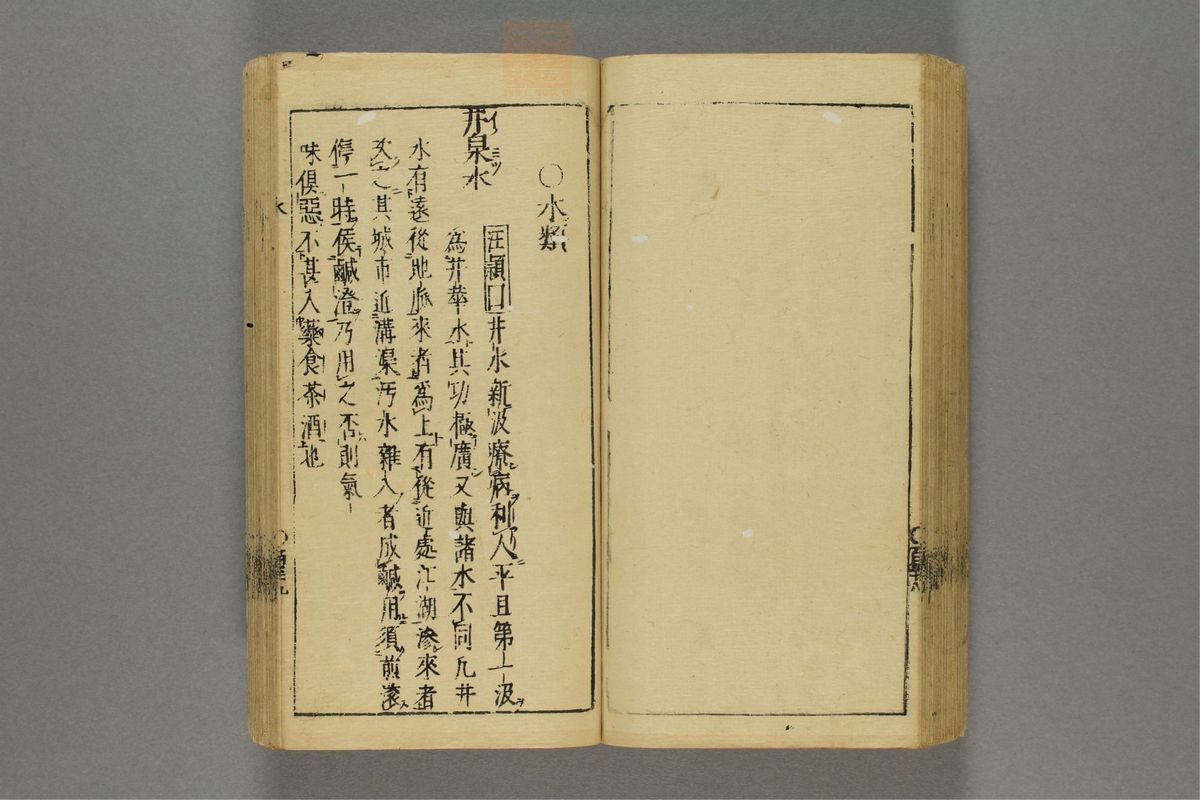 ○水類
井泉水
汪頴曰井水新汲療病利人平旦第一汲
為井華水其功極廣又與諸水不同凡井
水有遠從地脉來者為上有從近處江湖滲來者
次之其城市近溝渠汚水雜入者成鹹用須煎滚
停一時候鹹澄乃用之否則氣
味倶惡不甚入藥食茶酒也
水